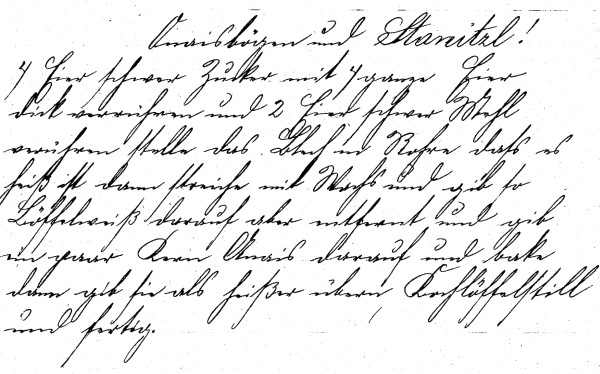 Anaisbögen und Stanitzl!
4 Eier schwer Zucker mit 4 ganze Eier
dick verrühren und 2 Eier schwer Mehl
verühren stelle das Blech in Rohre dahs es
heiß ist dann streiche mit Wachs und gib so
Löffelweiß darauf aber entfernt und gib
ein paar Kern Anais darauf und bake
dann gib sie als heißer übern Kochlöffelstill
und fertig.